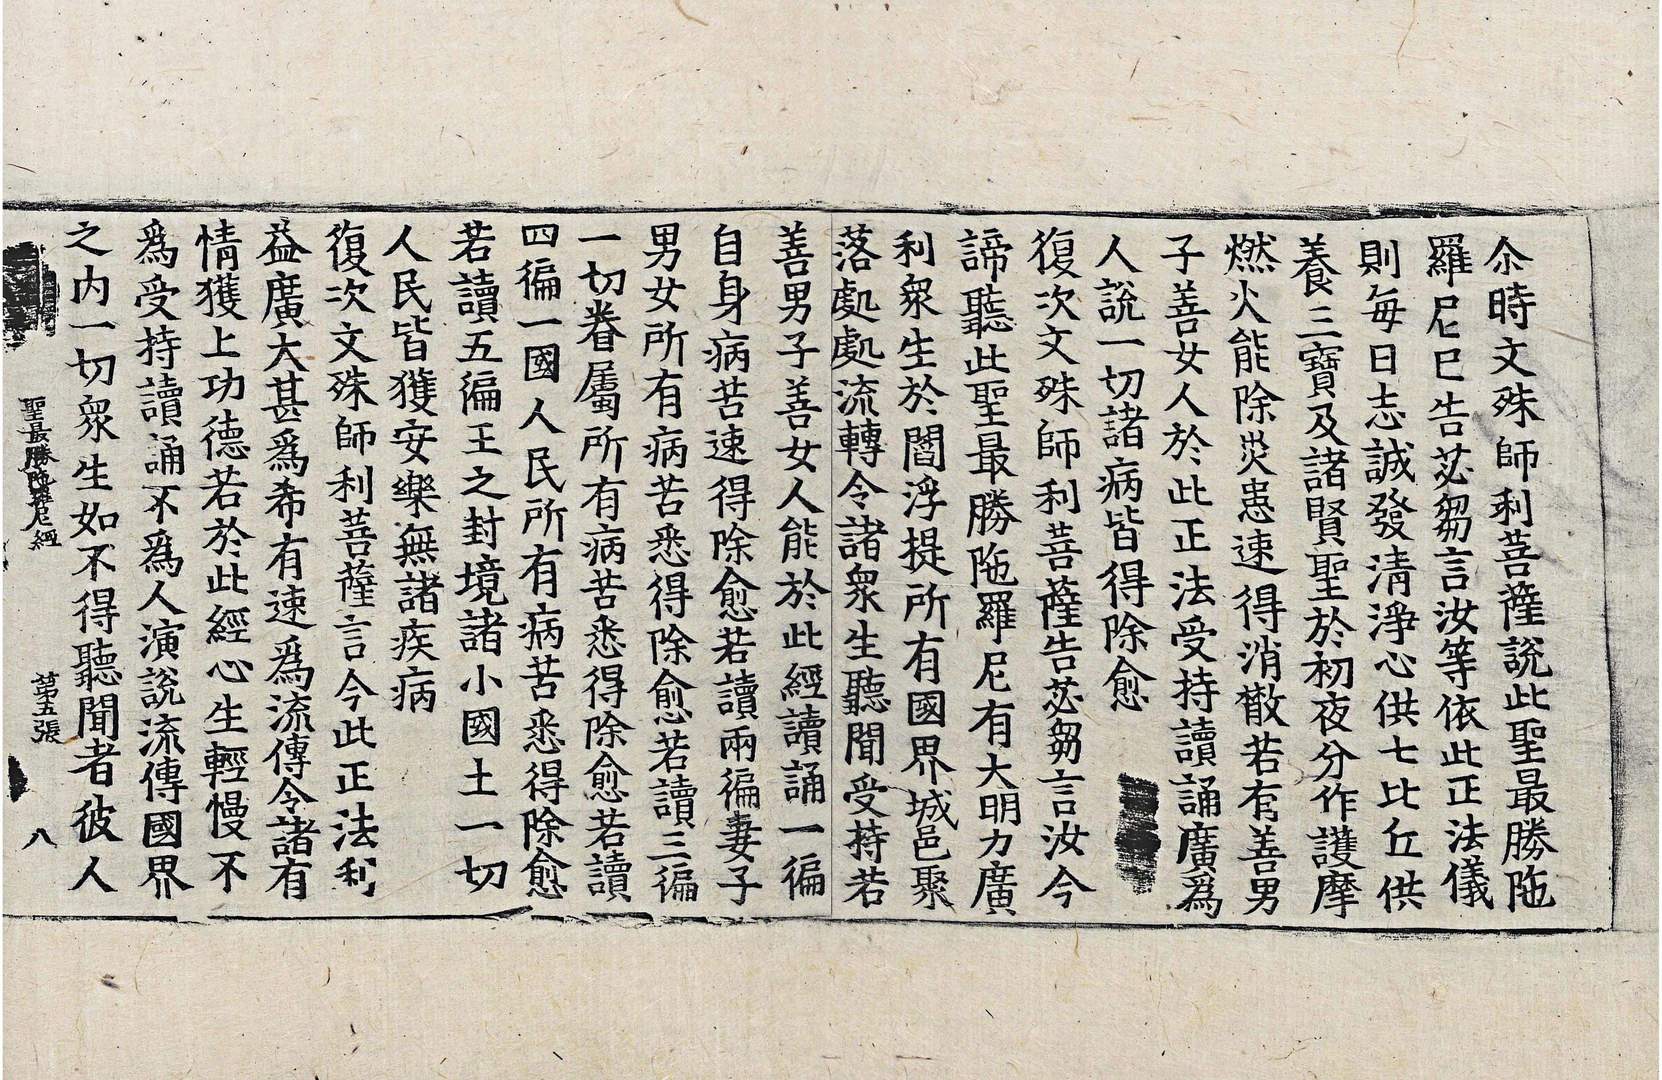 尒時文殊師利菩薩說此聖最勝陁
羅尼已告苾芻言汝等依此正法儀
則每日志誠發淸淨心供七比丘供
養三寶及諸賢聖於初夜分作護摩
燃火能除災患速得消散若有善男
子善女人於此正法受持讀誦廣爲
人說一切諸病皆得除愈
復次文殊師利菩薩告苾芻言汝今
諦聽此聖最勝陁羅尼有大明力廣
利衆生於閻浮提所有國界城邑聚
落處處流轉令諸衆生聽聞受持若
善男子善女人能於此經讀誦一徧
自身病苦速得除愈若讀兩徧妻子
男女所有病苦悉得除愈若讀三徧
一切眷屬所有病苦悉得除愈若讀
四徧一國人民所有病苦悉得除愈
若讀五徧王之封境諸小國土一切
人民皆獲安樂無諸疾病
復次文殊師利菩薩言今此正法利
益廣大甚爲希有速爲流傳令諸有
情獲上功德若於此經心生輕慢不
爲受持讀誦不爲人演說流傳國界
之內一切衆生如不得聽聞者彼人
聖最勝陁羅尼經 第五張 八